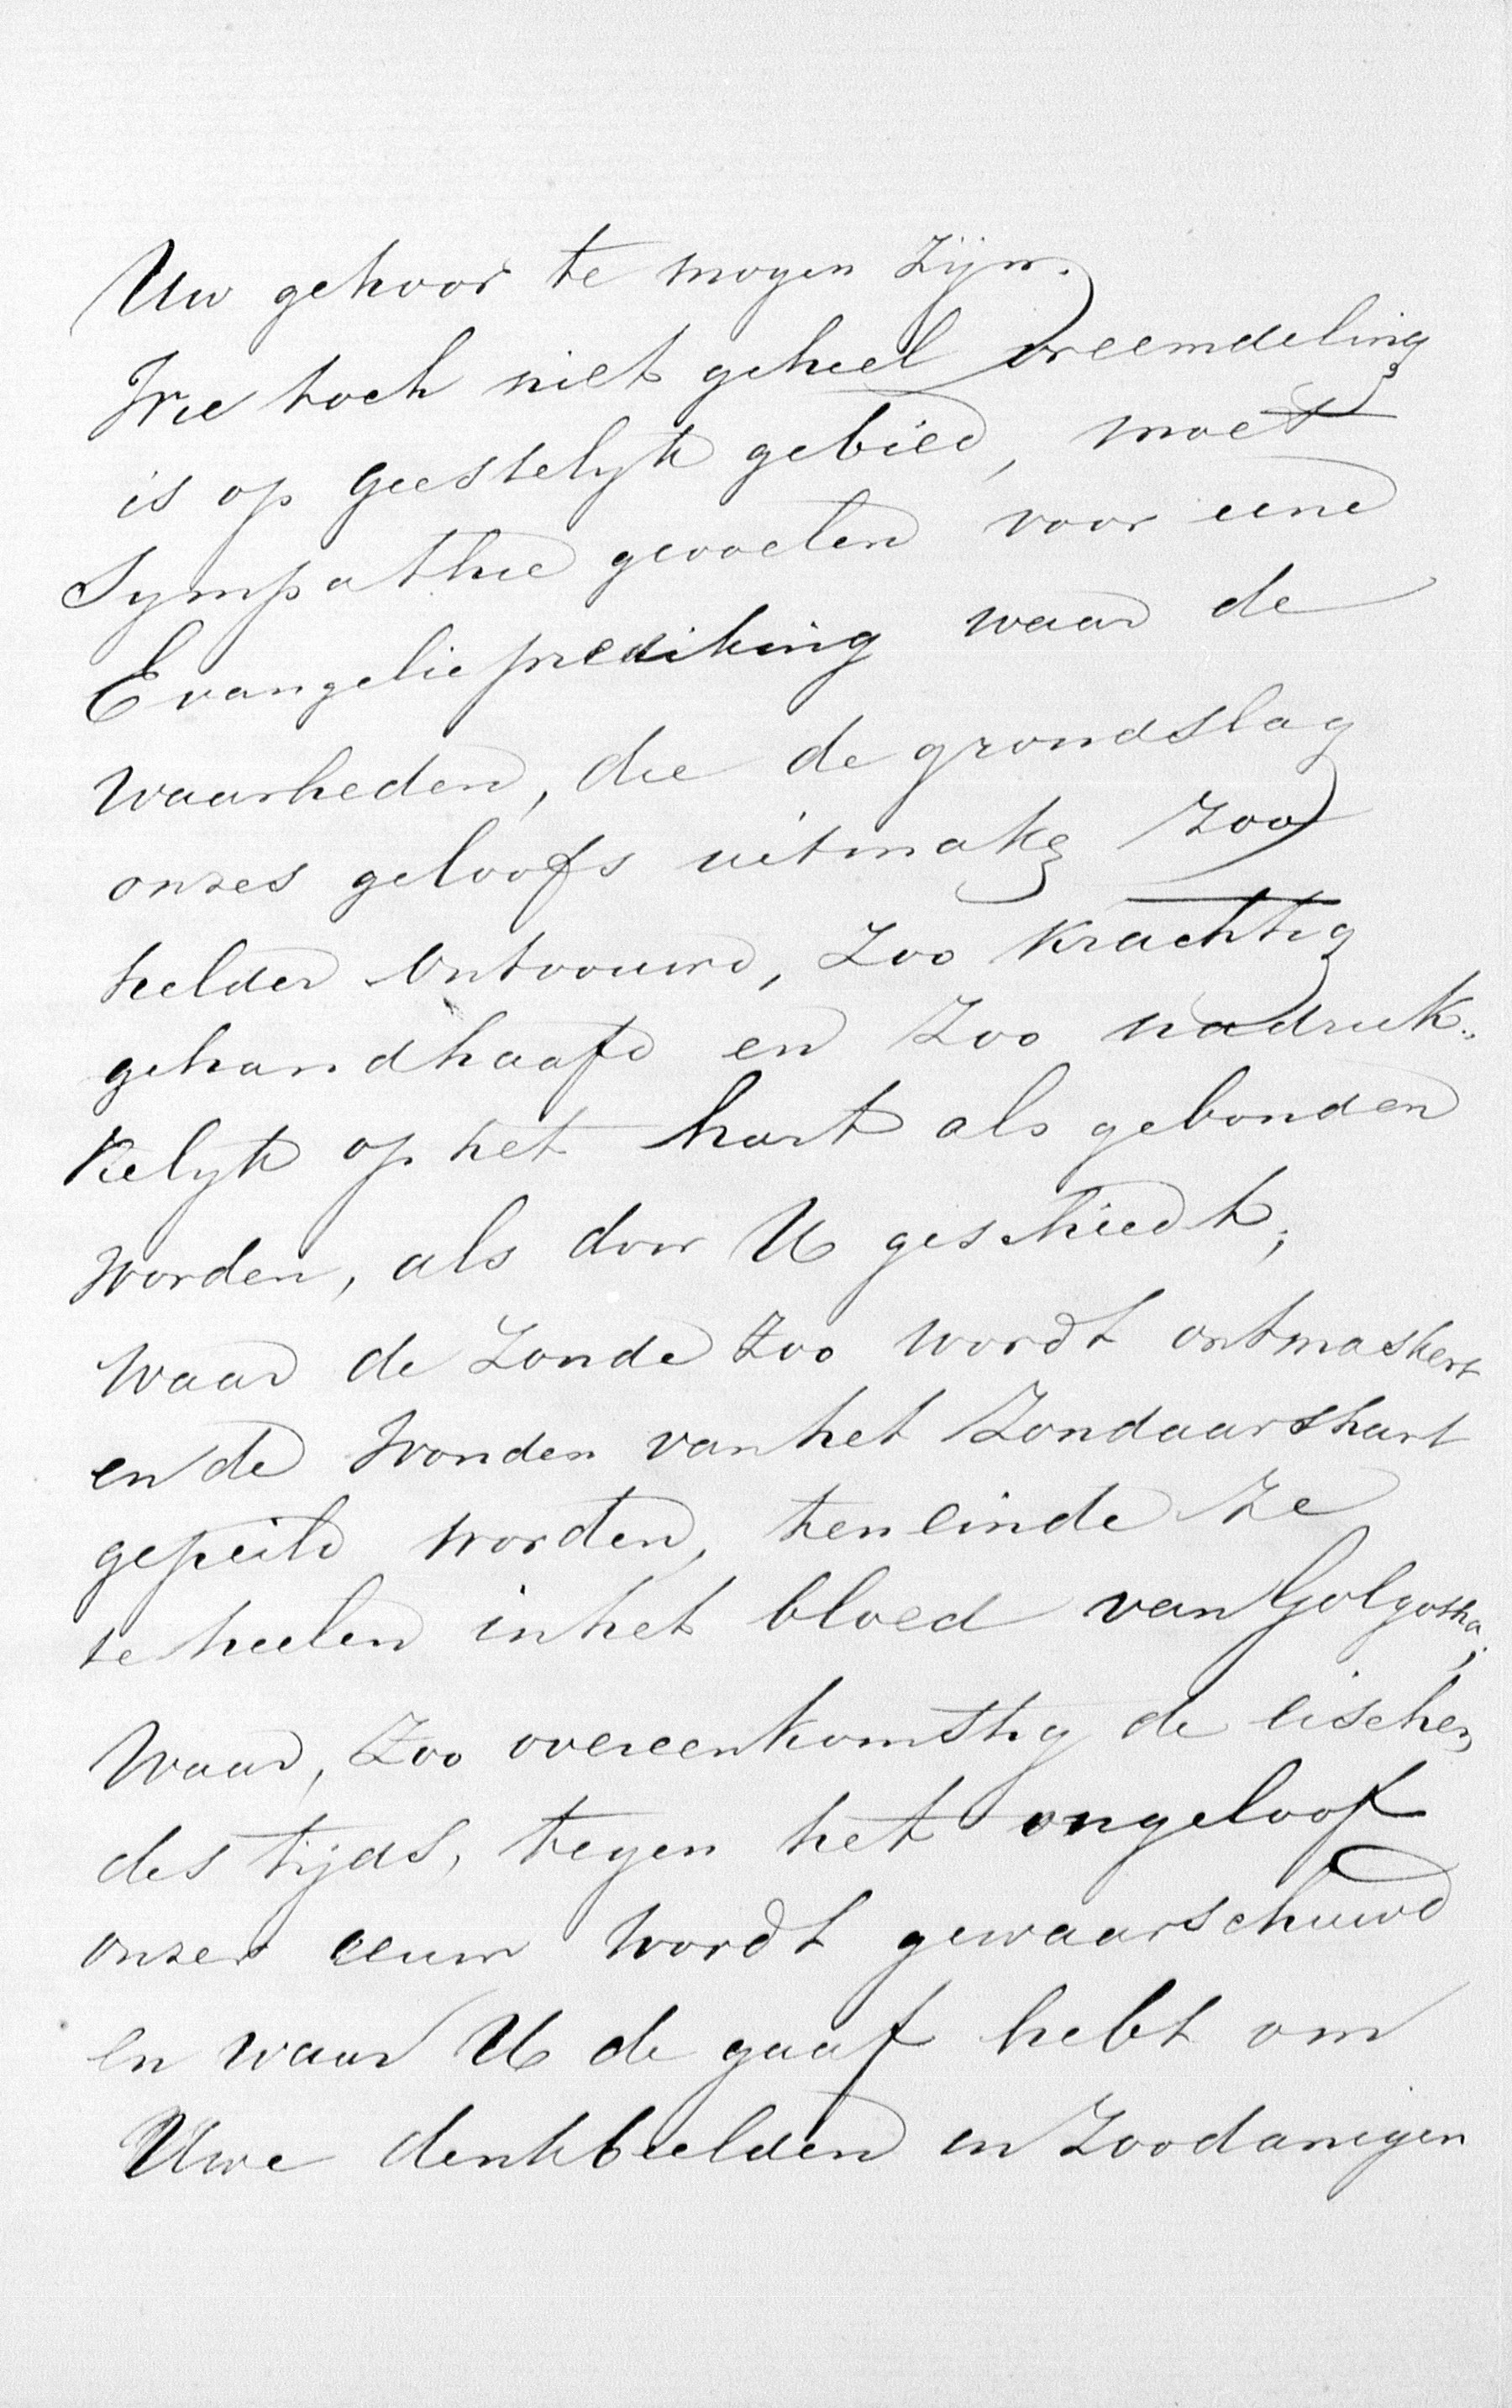 Uw gehoor te mogen zijn.
Wie toch niet geheel vreemdeling
is op geestelijk gebied, moet
sympathie gevoelen voor eene
Evangelieprediking waar de
waarheden, die de grondslag
onzes geloofs uitmaken zoo
helder ontvouwd, zoo krachtig
gehandhaafd en zoo nadruk-
kelijk op het hart als gebonden
worden, als door U geschiedt;
waar de zonde zoo wordt ontmaskert
en de wonden van het zondaarshart
gepeild worden, teneinde ze
te heelen in het bloed van Golgotha;
waar, zoo overeenkomstig de eischen
des tijds, tegen het ongeloof
onzer eeuw wordt gewaarschuwd
en waar U de gaaf hebt om
Uwe denkbeelden in zoodanigen